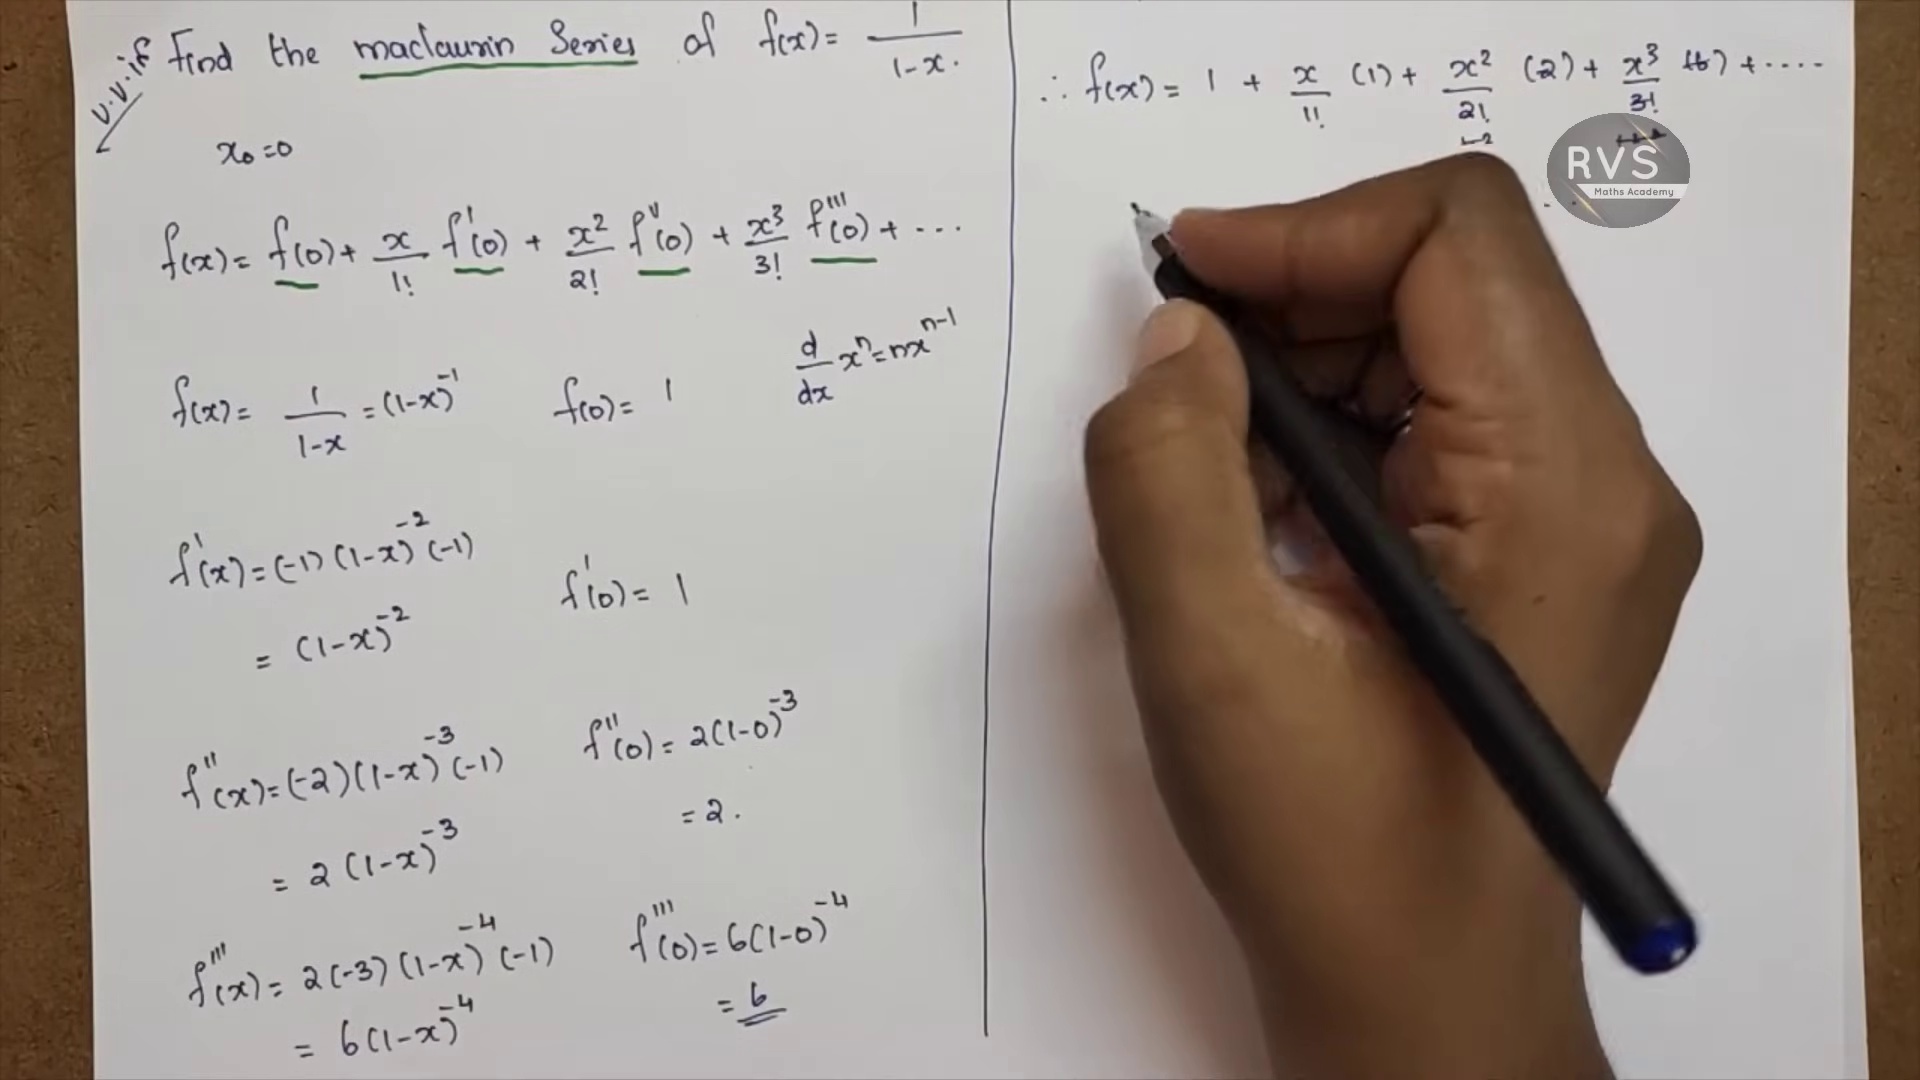 v.v.if Find the maclaurin Series of f(x) = 1/(1-x).
x₀=0
f(x) = f(0) + x/1! f'(0) + x²/2! f''(0) + x³/3! f'''(0) + ...
d/dx xⁿ = nxⁿ⁻¹
f(x) = 1/(1-x) = (1-x)⁻¹ f(0) = 1
f'(x) = (-1)(1-x)⁻²(-1)
= (1-x)⁻² f'(0) = 1
f''(x) = (-2)(1-x)⁻³(-1) f''(0) = 2(1-0)⁻³
= 2(1-x)⁻³ = 2.
f'''(x) = 2(-3)(1-x)⁻⁴(-1) f'''(0) = 6(1-0)⁻⁴
= 6(1-x)⁻⁴ = 6
∴ f(x) = 1 + x/1! (1) + x²/2! (2) + x³/3! (6) + ....
RVS
Maths Academy